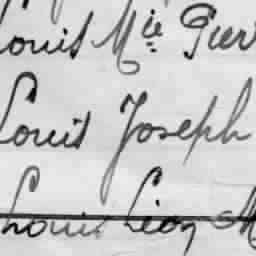 Louis Mie Pier
Louis Joseph
Louis Léon M